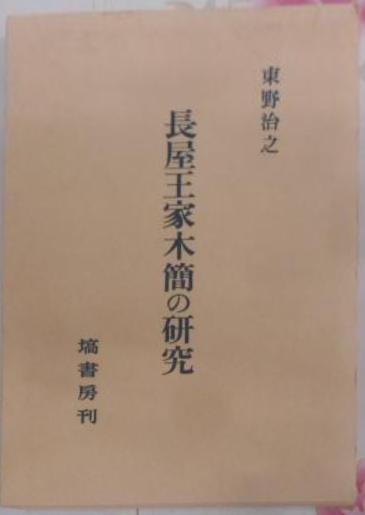 東野治之
長屋王家木簡の研究
塙書房刊